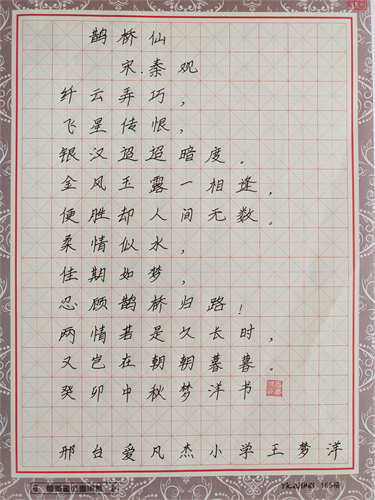 鹊桥仙
宋.秦观
纤云弄巧，
飞星传恨，
银汉迢迢暗度。
金风玉露一相逢，
便胜却人间无数。
柔情似水，
佳期如梦，
忍顾鹊桥归路！
两情若是久长时，
又岂在朝朝暮暮。
癸卯中秋梦洋书
邢台爱凡杰小学王梦洋